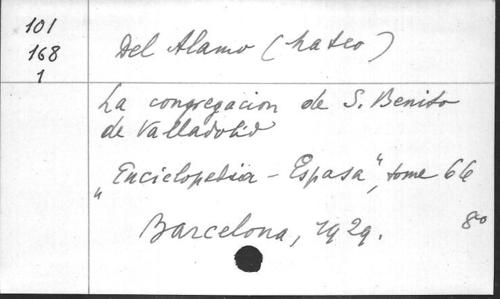 101
168
1
Del Alamo (Mateo)
La congregacion de S. Benito
de Valladolid
"Enciclopedia - Espasa", tome 66
Barcelona, 1929. 8º